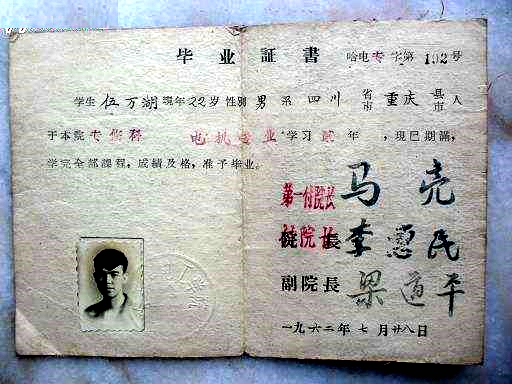 毕业証書
哈电专字第192号
学生伍万湖现年22岁性别男系四川省市重庆县市人
于本院专修科 电机专业学习贰年，现已期满，
学完全部課程，成績及格，准予毕业。
第一付院长 马壳
院长 李惠民
副院長 梁道平
一九六二年七月廿八日